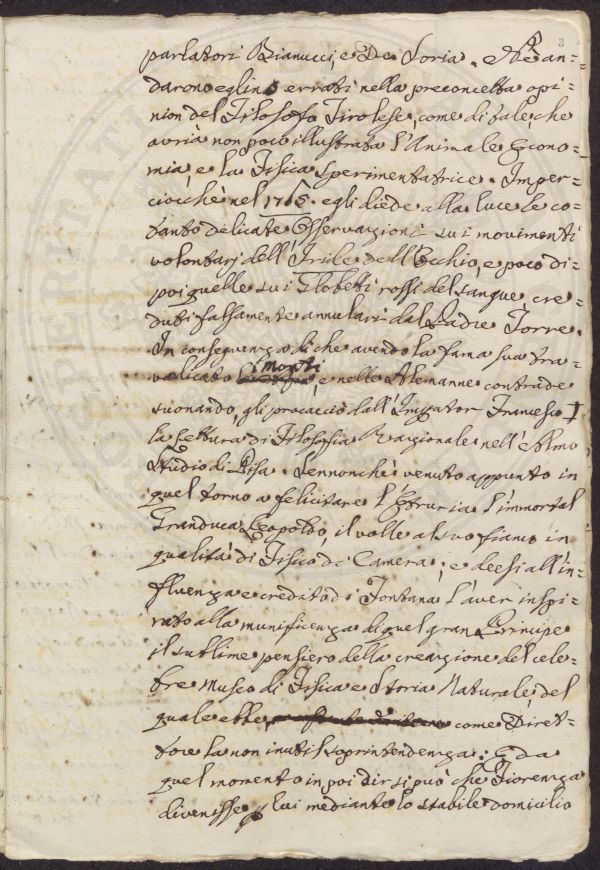 3
parlatori Bianucci, e De Soria. Nè an-
darono eglino errati nella preconcetta opi-
nion del Filosofo Tirolese, come di tale, che
avria non poco illustrata l'Animale Econo-
mia, e la Fisica Sperimentatrice. Imper-
ciocchè nel 1765. egli diede alla luce le co-
tanto delicate Osservazioni su i movimenti
volontarj dell'Iride dell'Occhio, e poco di-
poi quelle su i Globetti rossi del sangue cre-
duti falsamente annulari dal Padre Torre.
In conseguenza di che avendo la fama sua tra-
valicato i Monti, e nelle Alemanne contrade
suonando, gli procacciò dall'Imperator Francesco I
la Lettura di Filosofia Razionale nell'Almo
Studio di Pisa. Sennonchè venuto appunto in
quel torno a felicitare l'Etruria l'immortal
Granduca Leopoldo, il volle al suo fianco in
qualità di Fisico di Camera; e deesi all'in-
fluenza e credito di Fontana l'aver inspi-
rato alla munificenza di quel gran Principe
il sublime pensiero della creazione del cele-
bre Museo di Fisica e Storia Naturale, del
quale ebbe come Diret-
tore la non inutil soprintendenza: E da
quel momento in poi dir si può che Fiorenza
divenisse lui mediante lo stabile domicilio